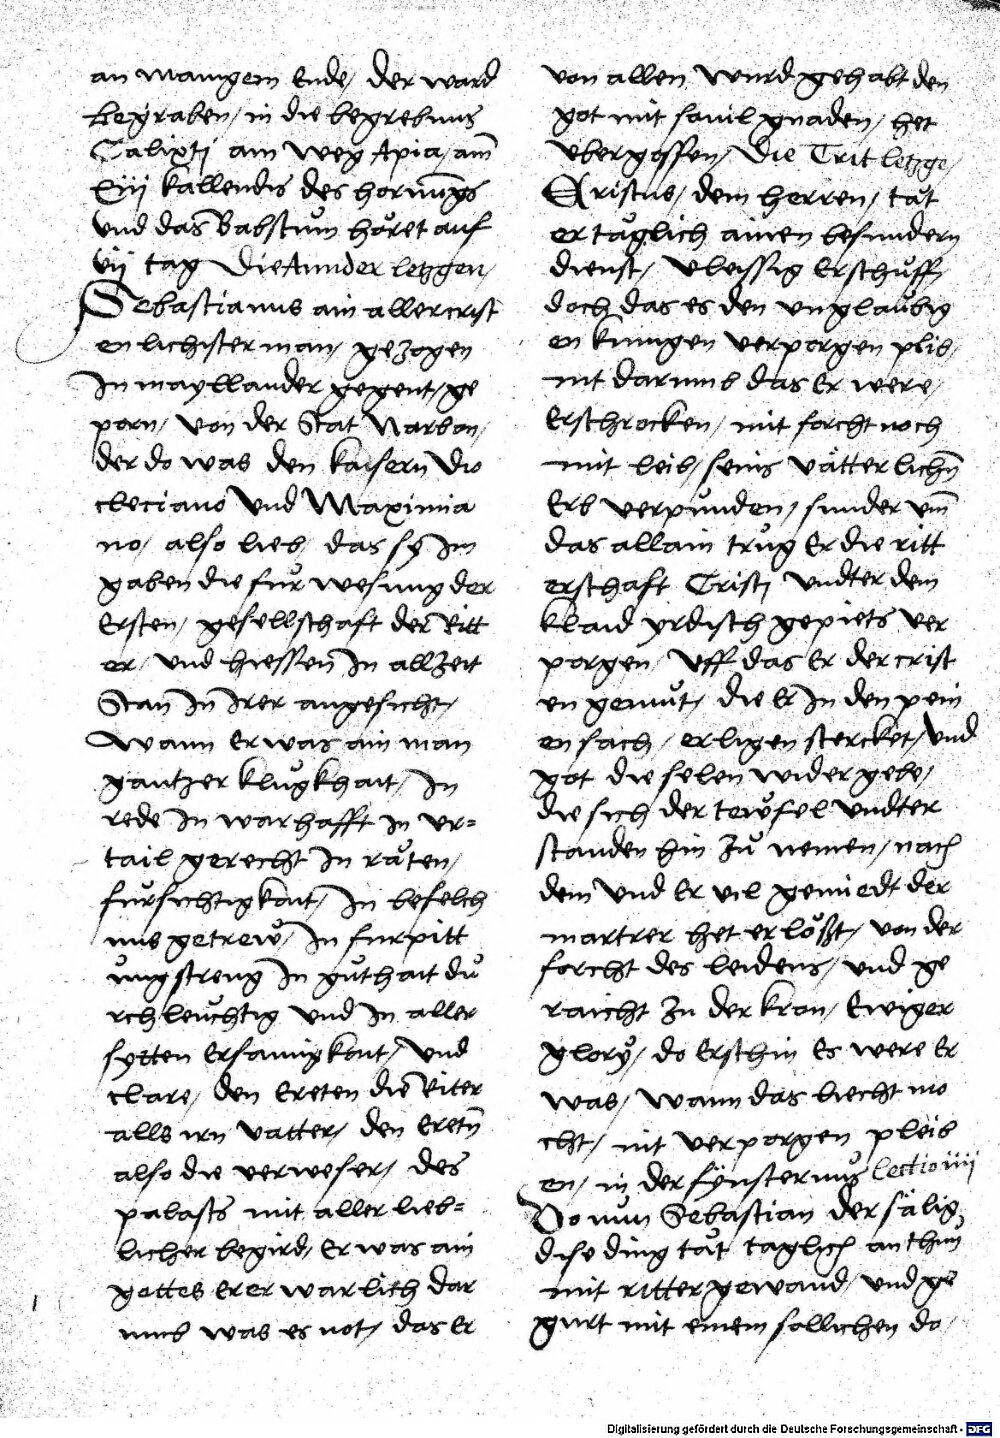 an mannigem Ende / der ward
begraben / in die begrebnus
Calixti am weg Apia / am̄
xiij kallendis des hornu̅gs
Vnd das Babstum hoͤret auf
vij tag Die Annder letzgen /
Sebastianus ain aller crist
enlichister man / gezogen
In mayllander gegent / ge
porn / von der Stat Narbon /
der do was den kaisern Dio
cleciano Vnd Maximia
no / also lieb / das sy Im
gaben die fuͤrwesung der
Ersten / gesellschaft der Ritt
er / vnd hiessen In allzeit
Stan In Irer angesicht /
Wann Er was ain man
gantzer klugkhait / In
rede In warhafft In vr=
tail gerecht In raͤten /
fuͤrsichtigkait / In befelch
nus getrew / In furpitt
ung streng In guthait du
rchleuchtig vnd In aller
sytten Ersamigkait / Vnd
clare / den Ereten die Riter
alls irn vatter / den Eretn̄
also die verweser / des
palasts mit aller lieb=
licher begird / Er was ain
gottes Erer warlich dar
umb was es not / das Er
von allen wurd gehabt den
got mit souil gnaden / het
vbergossen / Die Trit letzge /
Cristus / dem herren / tat
er taͤglich ainen besundern
dienst / vleissig Erschuff /
doch das es den vnglaubig
en kunigen verporgen plib /
nit darumb das Er were /
Erschrocken / mit forcht noch
mit leib / seins vaͤtterlichn̄
Erb verpunden / sunder vm̄
das allain trug Er die ritt
erschaft Cristi vndter dem
klaid yrdisch gepiets ver
porgen / Vff das Er der crist
en gemut / die Er In den pein
en sach / erligen stercket / Vnd
got die selen wider gebe /
die sich der tewfel vndter
standen hin zu nemen / nach
dem vnd Er vil gemiedt der
martrer het erloͤst / von der
forcht des leidens / vnd ge
raicht zu der kron / Ewiger
glory / do Erschin Es were Er
was / wann das liecht mo
cht / nit verporgen pleib
en / in der fynsternus lectio iiij
Do nun Sebastian der saͤlig
dise ding tat taglich anthun̄
mit ritter gewand / vnd ge
gurt mit einem sollichen do /
Digitalisierung gefördert durch die Deutsche Forschungsgemeinschaft - DFG